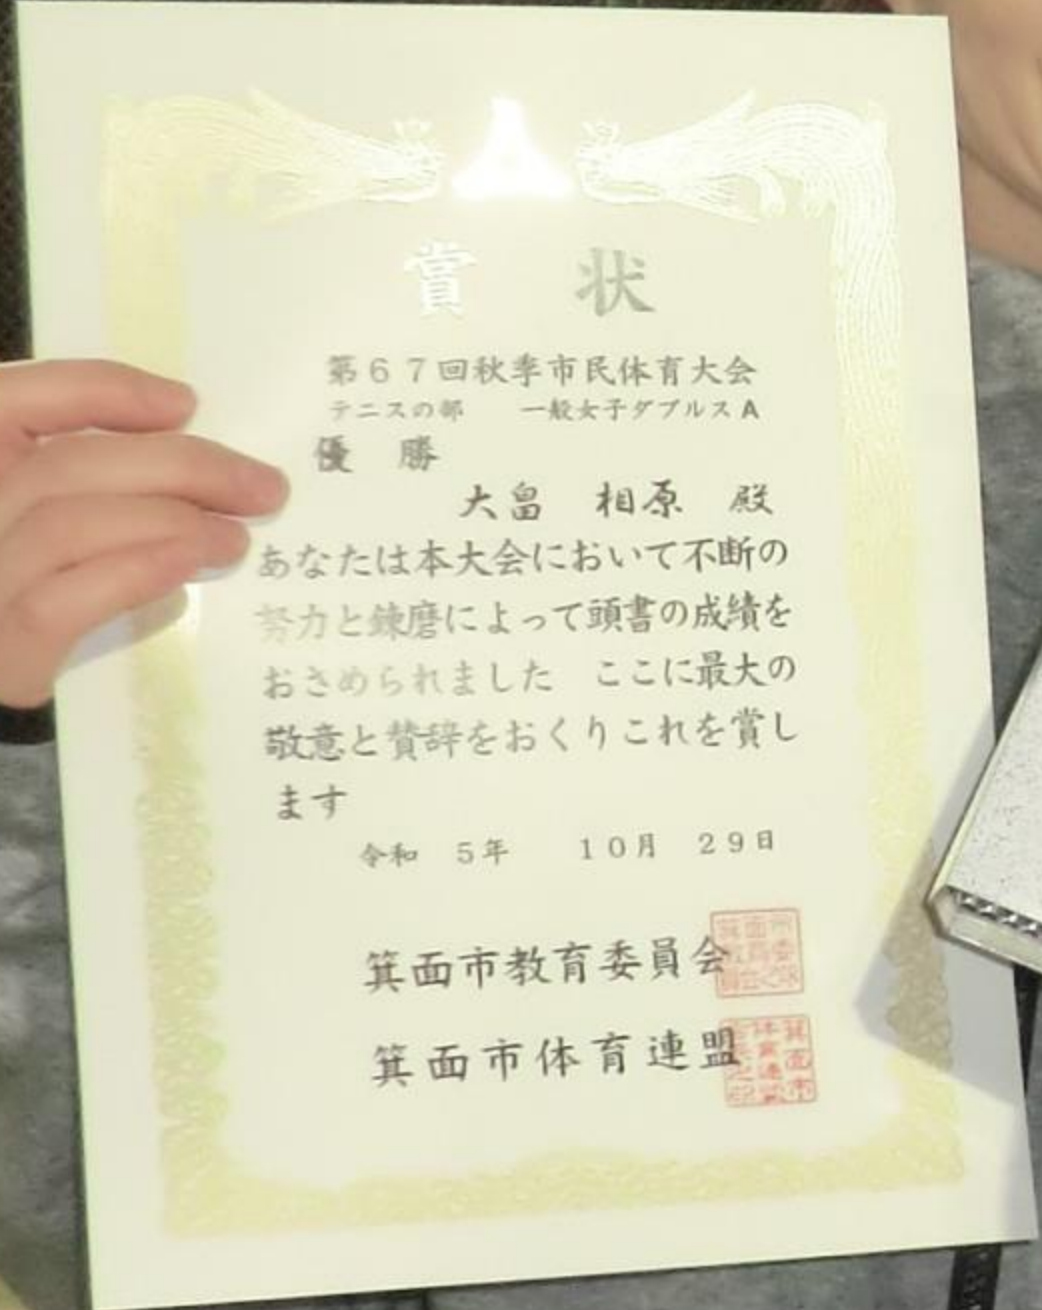 賞 状
第67回秋季市民体育大会
テニスの部 一般女子ダブルスA
優 勝
大畠 相原 殿
あなたは本大会において不断の
努力と錬磨によって頭書の成績を
おさめられました ここに最大の
敬意と賛辞をおくりこれを賞し
ます
令和 5年 10月 29日
箕面市教育委員会
箕面市体育連盟